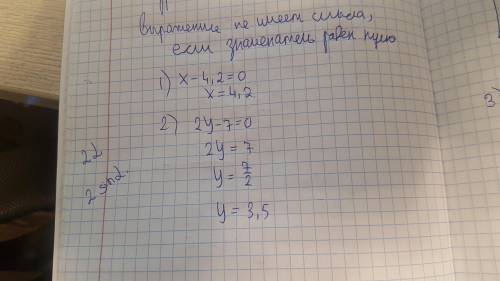 выражение не имеет смысла,
если знаменатель равен нулю
1) x-4,2=0
x=4,2
2) 2y-7=0
2y=7
y=7/2
y=3,5
3)